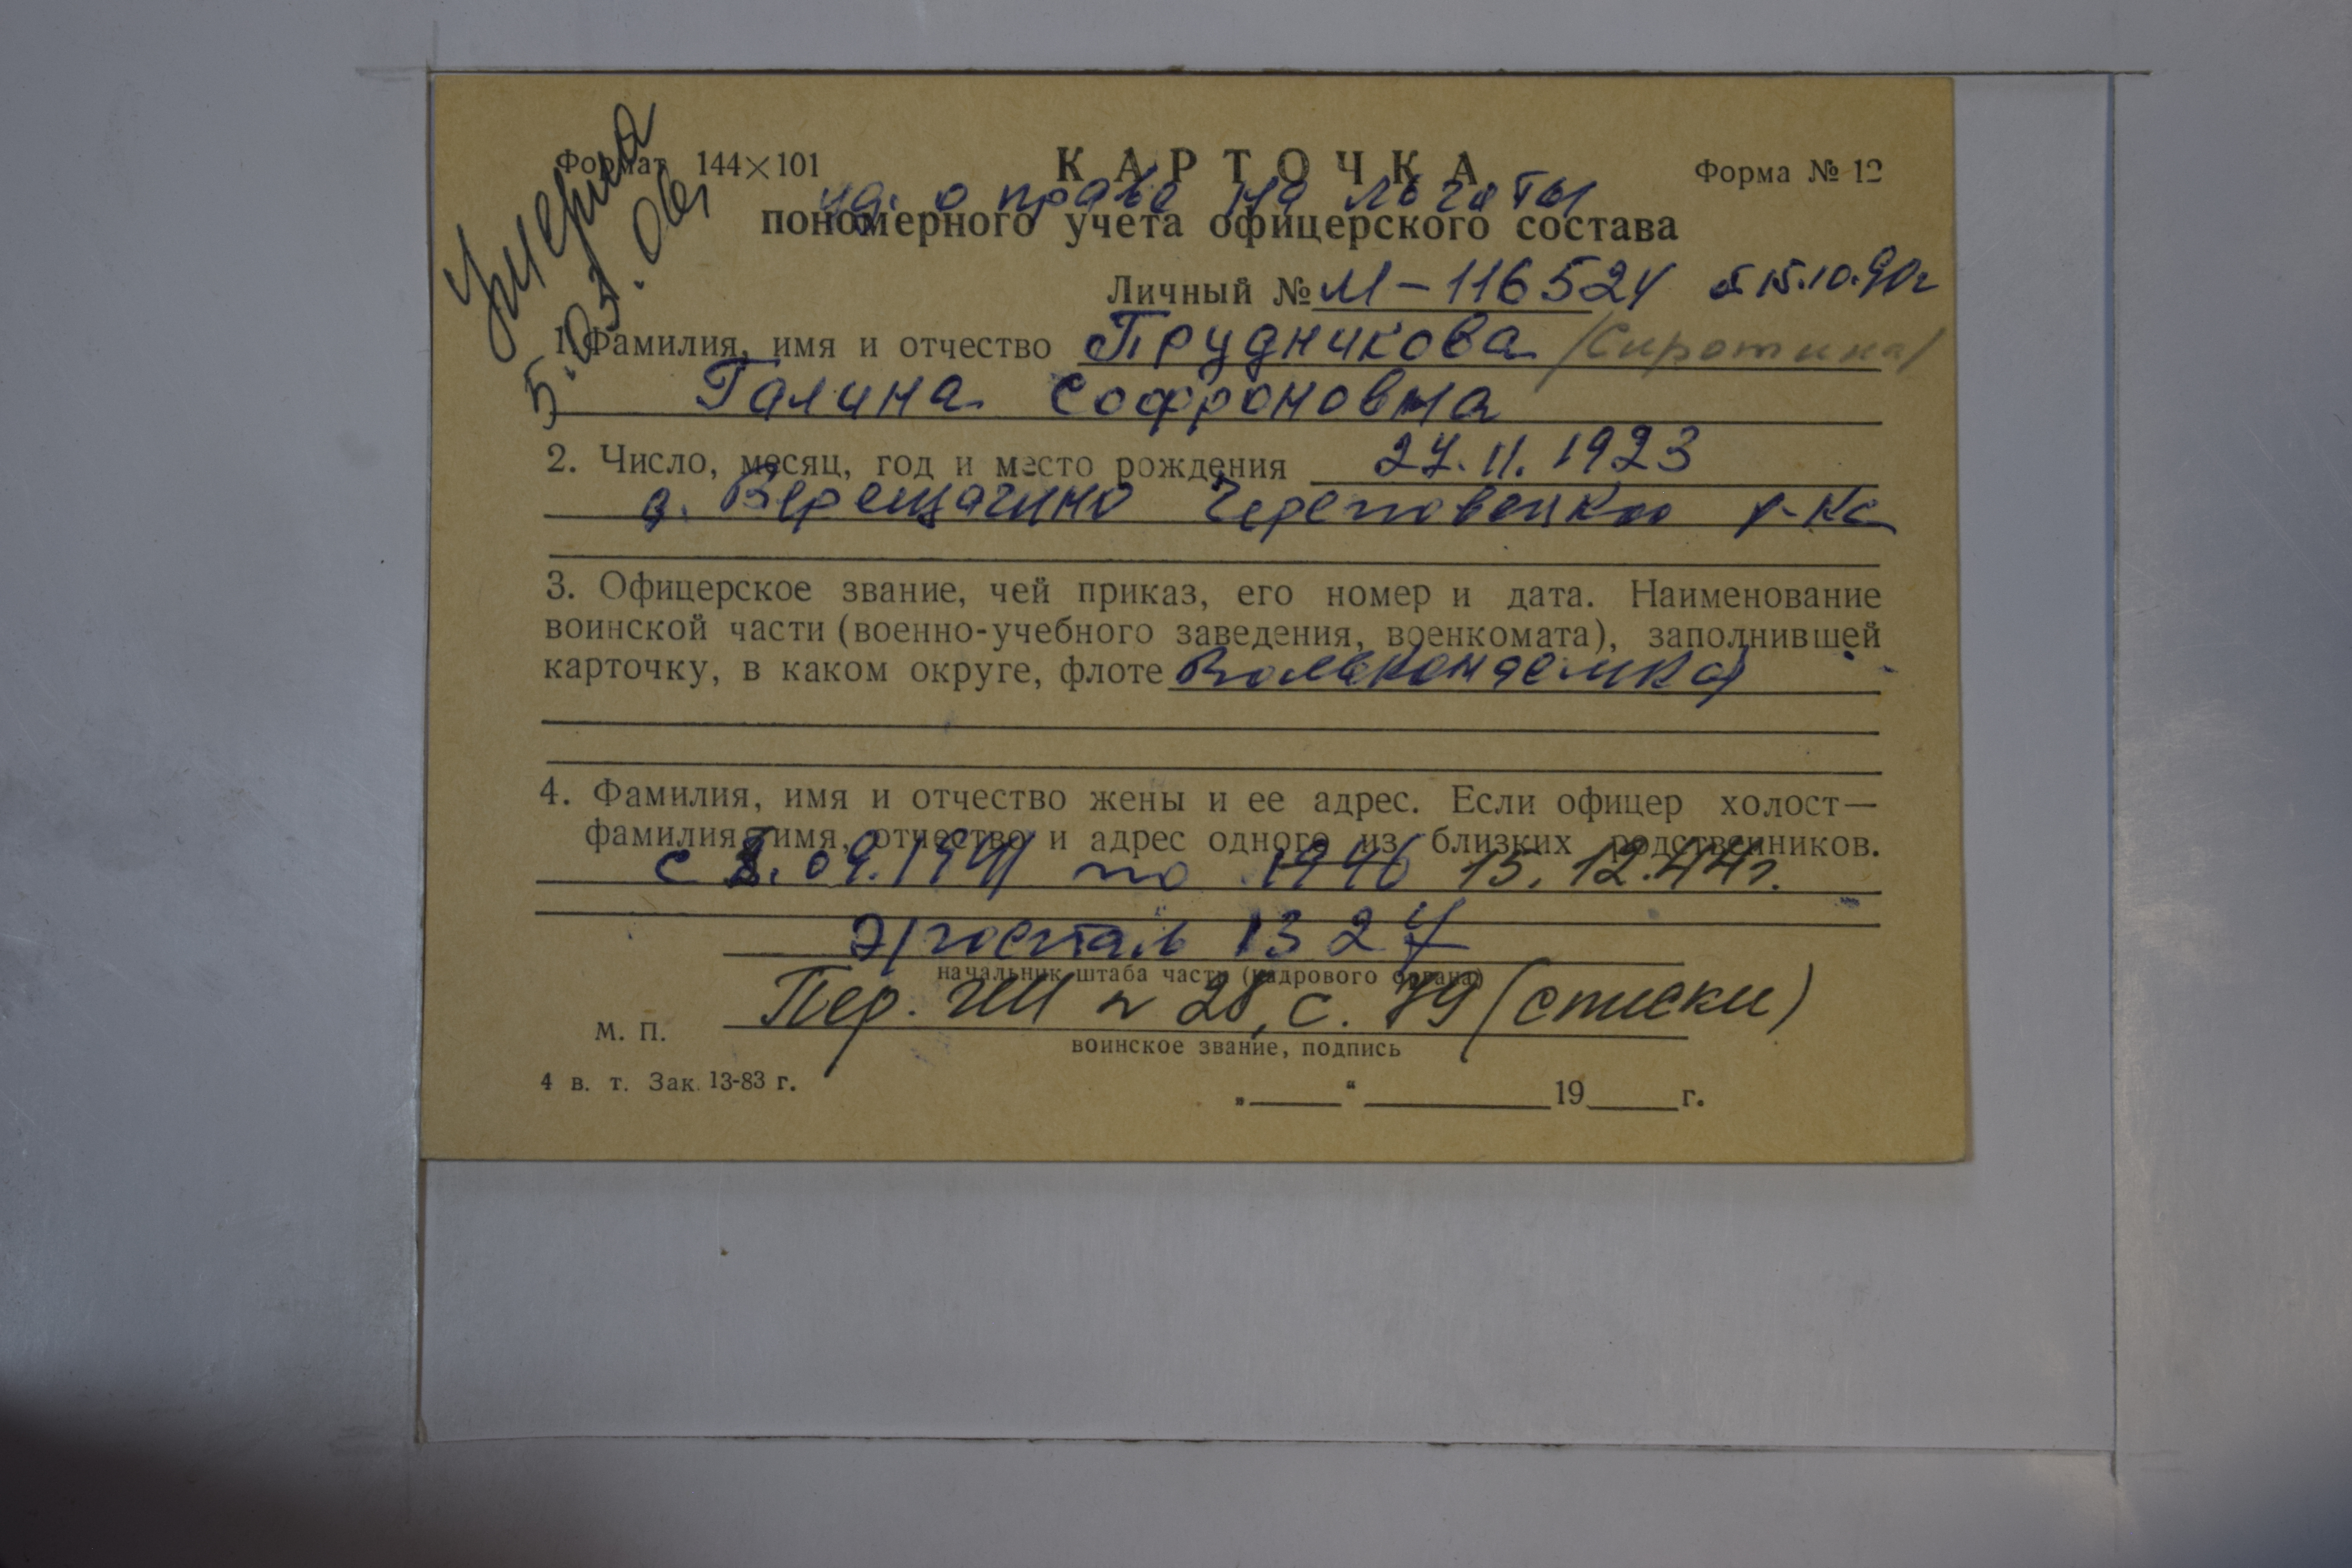 Умерла
5.03.06г
Формат 144×101
КАРТОЧКА
Форма № 12
уд. о праве на льготы
пономерного учета офицерского состава
Личный № М-116524 от 15.10.90г
1. Фамилия, имя и отчество Прудникова /Сиротина/
Галина Софроновна
2. Число, месяц, год и место рождения 27.11.1923
д. Верещагино Череповецкого р-на
3. Офицерское звание, чей приказ, его номер и дата. Наименование
воинской части (военно-учебного заведения, военкомата), заполнившей
карточку, в каком округе, флоте Вольнонаемная
4. Фамилия, имя и отчество жены и ее адрес. Если офицер холост—
фамилия, имя, отчество и адрес одного из близких родственников.
с 09.1941 по 1946 15.12.44г.
Э/госпиталь 1327
начальник штаба части (кадрового органа)
Пер. ГШ № 28, с. 79 (списки)
М. П.
воинское звание, подпись
4 в. т. Зак. 13-83 г.
„____“ ________19____г.